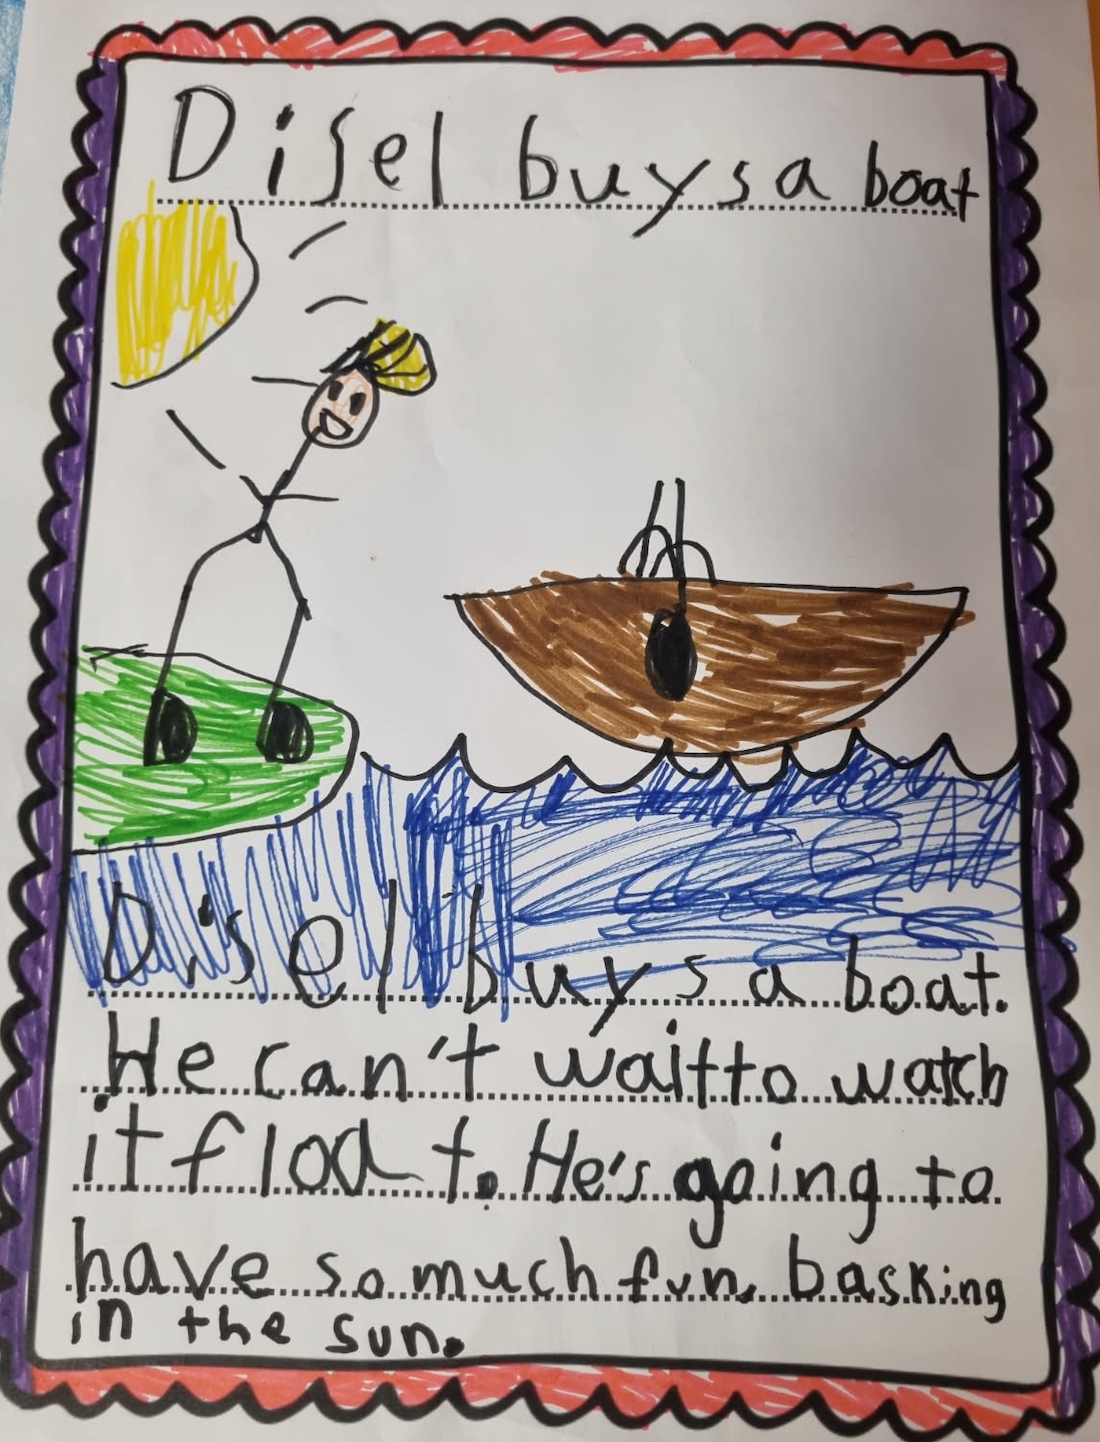 Disel buys a boat
Disel buys a boat.
He can't wait to watch
it float. He's going to
have so much fun, basking
in the sun.